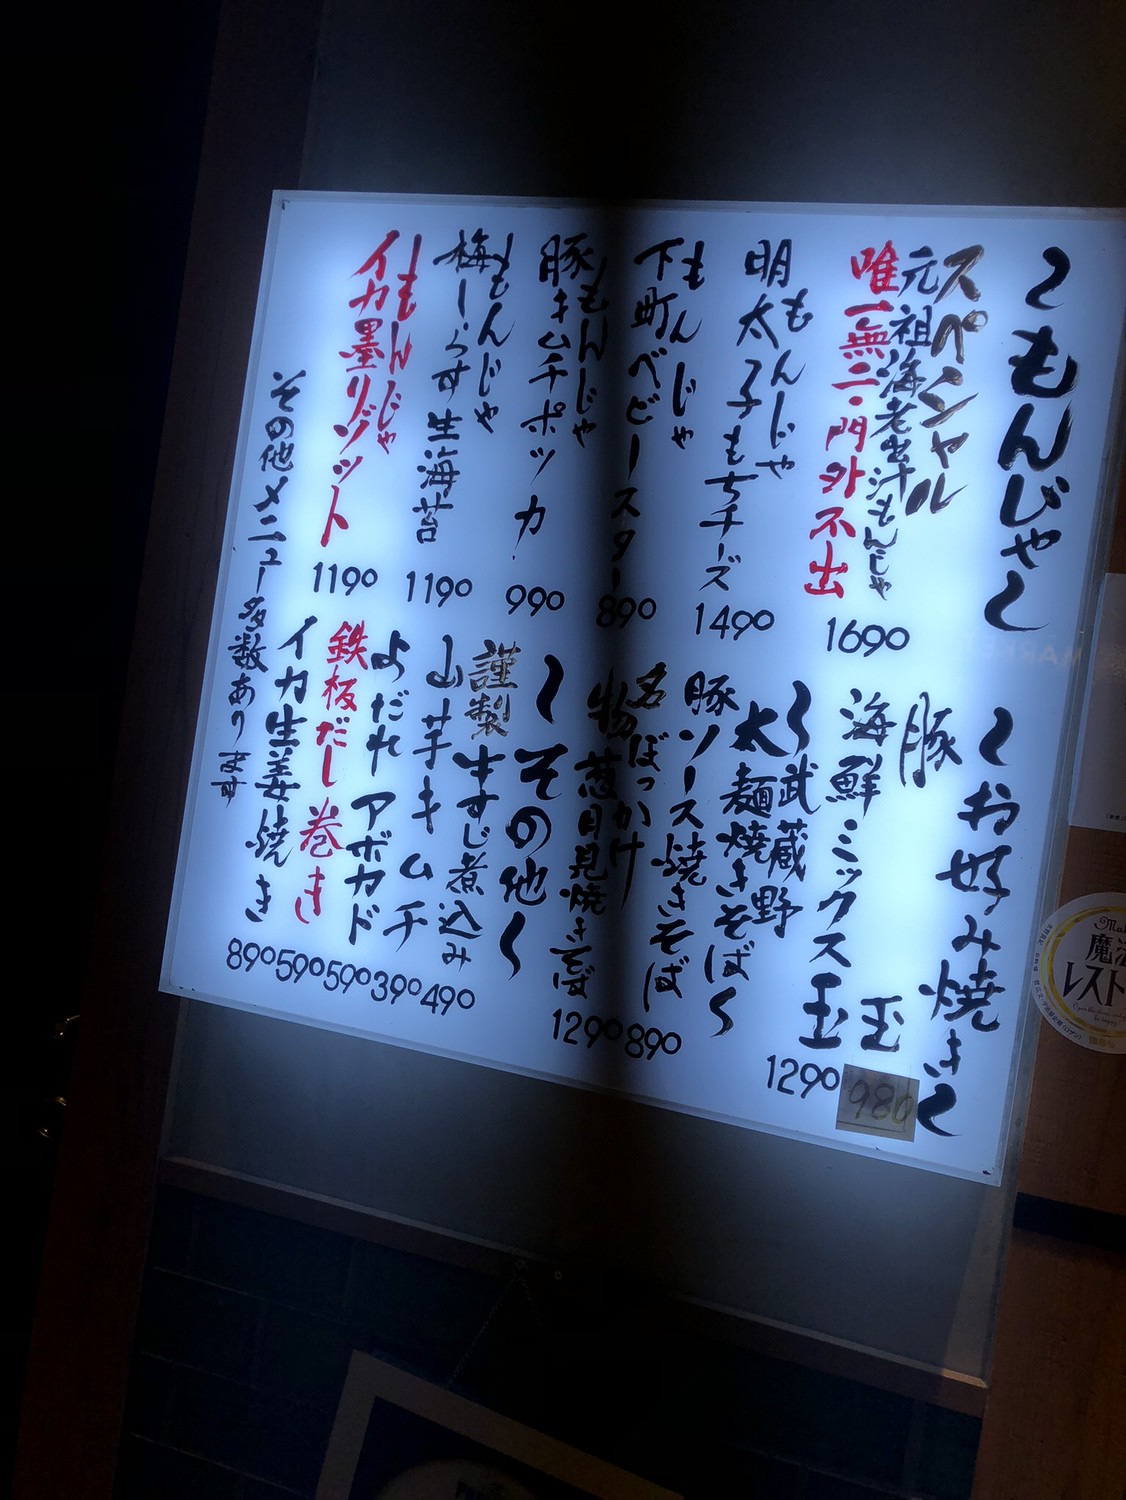 〜もんじゃ〜
スペシャル
元祖海老出汁もんじゃ
唯一無二・門外不出
1690
もんじゃ
明太子もちチーズ
1490
もんじゃ
下町ベビースター
890
もんじゃ
豚キムチポッカ
990
もんじゃ
梅しらす生海苔
1190
もんじゃ
イカ墨リゾット
1190
その他メニュー多数あります
〜お好み焼き〜
豚玉
980
海鮮ミックス玉
1290
〜武蔵野
太麺焼きそば〜
豚ソース焼きそば
890
名物
ぼっかけ
葱月見焼きそば
1290
〜その他〜
謹製
牛すじ煮込み
490
山芋キムチ
390
よだれアボカド
590
鉄板だし巻き
590
イカ生姜焼き
890
魔法
レスト